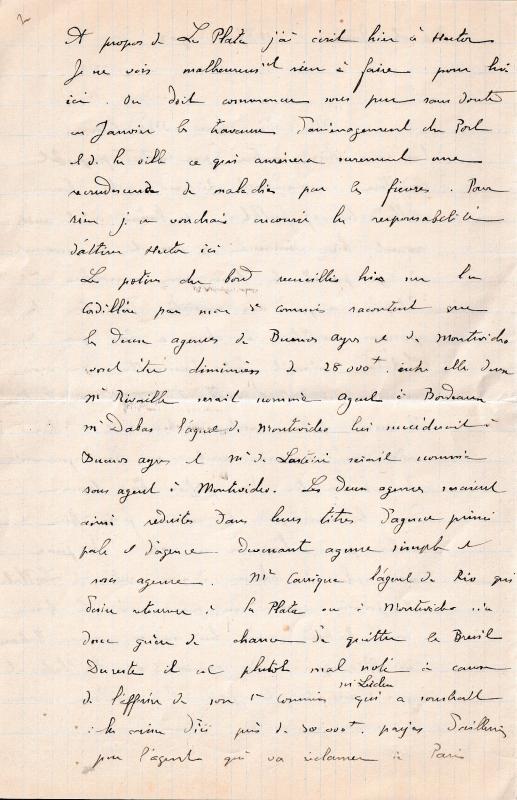 2
A propos de La Plata j'ai écrit hier à Hector
Je ne vois malheureust rien à faire pour lui
ici. On doit commencer sous peu sans doute
en Janvier les travaux d'aménagement du Port
et de la ville ce qui amènera surement une
recrudescence de maladies par les fièvres. Pour
rien je ne voudrais encourir la responsabilité
d'attirer Hector ici
Les potins du bord recueillis hier sur la
Cordillère par mon 2e commis racontent que
les deux agences de Buenos Ayres et de Montevideo
vont être diminuées de 28000f. entre elles deux
Mr Rivaille serait nommé Agent à Bordeaux
Mr Dabas l'agent de Montevideo lui succéderait à
Buenos ayres et Mr de serait nommé
sous agent à Montevideo. Les deux agences seraient
ainsi réduites dans leurs titres d'agence princi
pale et d'agence devenant agence simple et
sous agence. Mr Carrique l'agent de Rio qui
désire retourner à La Plata ou à Montevideo n'a
donc guère de chance de quitter le Bresil
Du reste il est plutôt mal noté à cause
de l'affaire de son 1er commis qui a soustrait
à la caisse d'ici près de 30 000f. payés d'ailleurs
par l'agent qui va réclamer à Paris